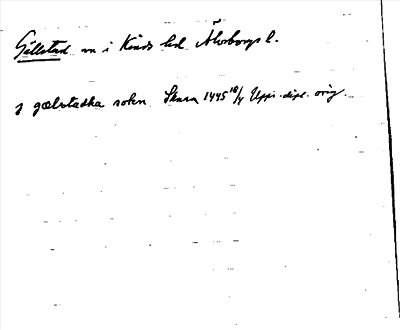 Gällstad sn i Kinds hd Älvsborgs l.
j gælstadha sokn Skara 1445 18/4 Upps. dipl. orig.